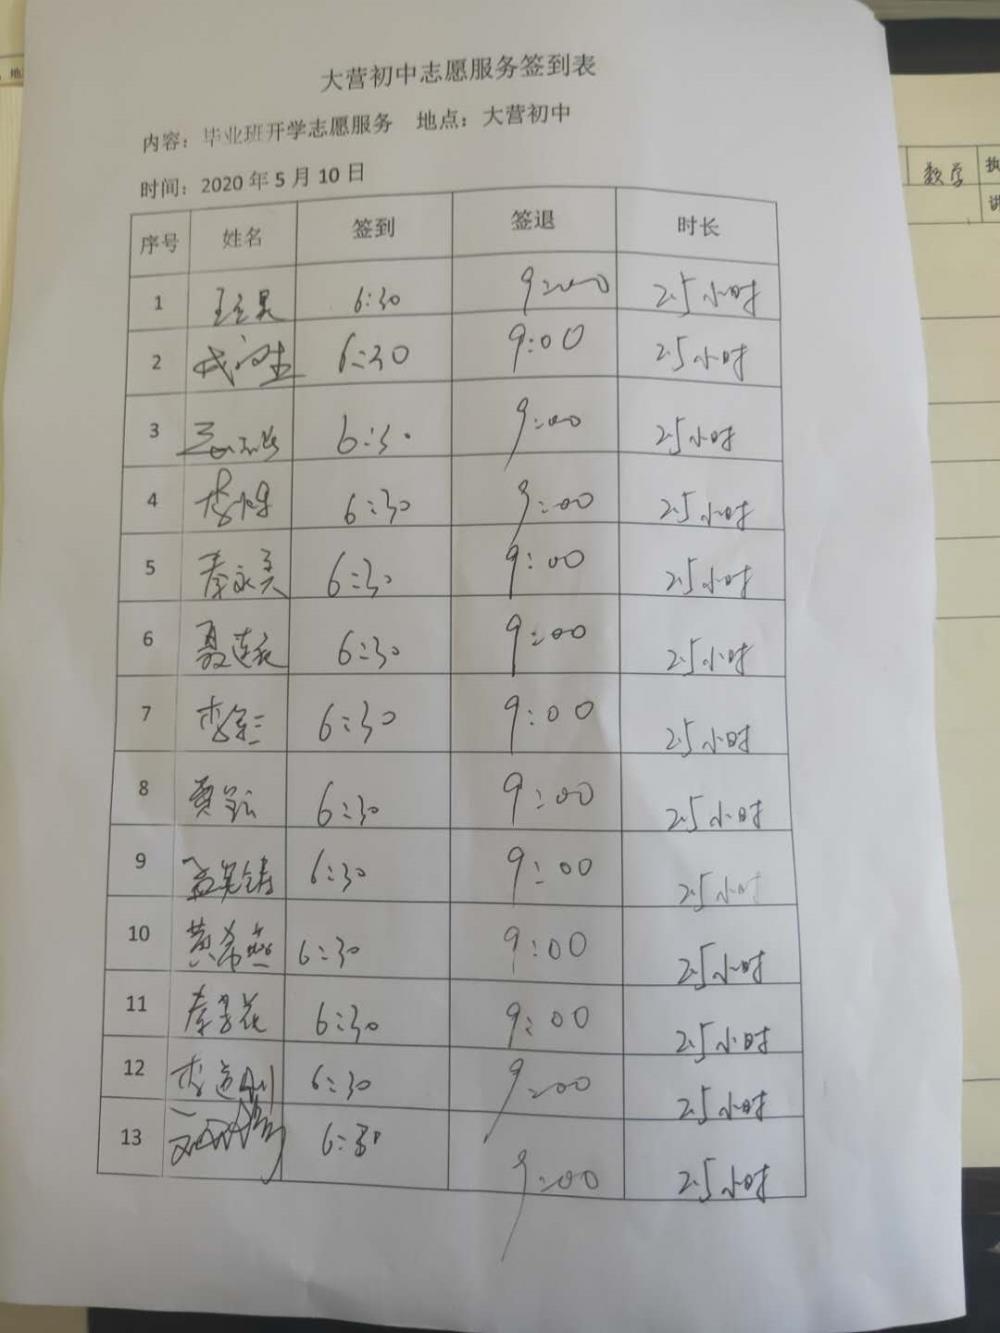 大营初中志愿服务签到表
内容：毕业班开学志愿服务 地点：大营初中
时间：2020年5月10日
序号 姓名 签到 签退 时长
1 6:30 9:00 2.5小时
2 6:30 9:00 2.5小时
3 6:30 9:00 2.5小时
4 6:30 9:00 2.5小时
5 秦永美 6:30 9:00 2.5小时
6 聂连花 6:30 9:00 2.5小时
7 6:30 9:00 2.5小时
8 6:30 9:00 2.5小时
9 6:30 9:00 2.5小时
10 黄希燕 6:30 9:00 2.5小时
11 6:30 9:00 2.5小时
12 李道刚 6:30 9:00 2.5小时
13 6:30 9:00 2.5小时
数学